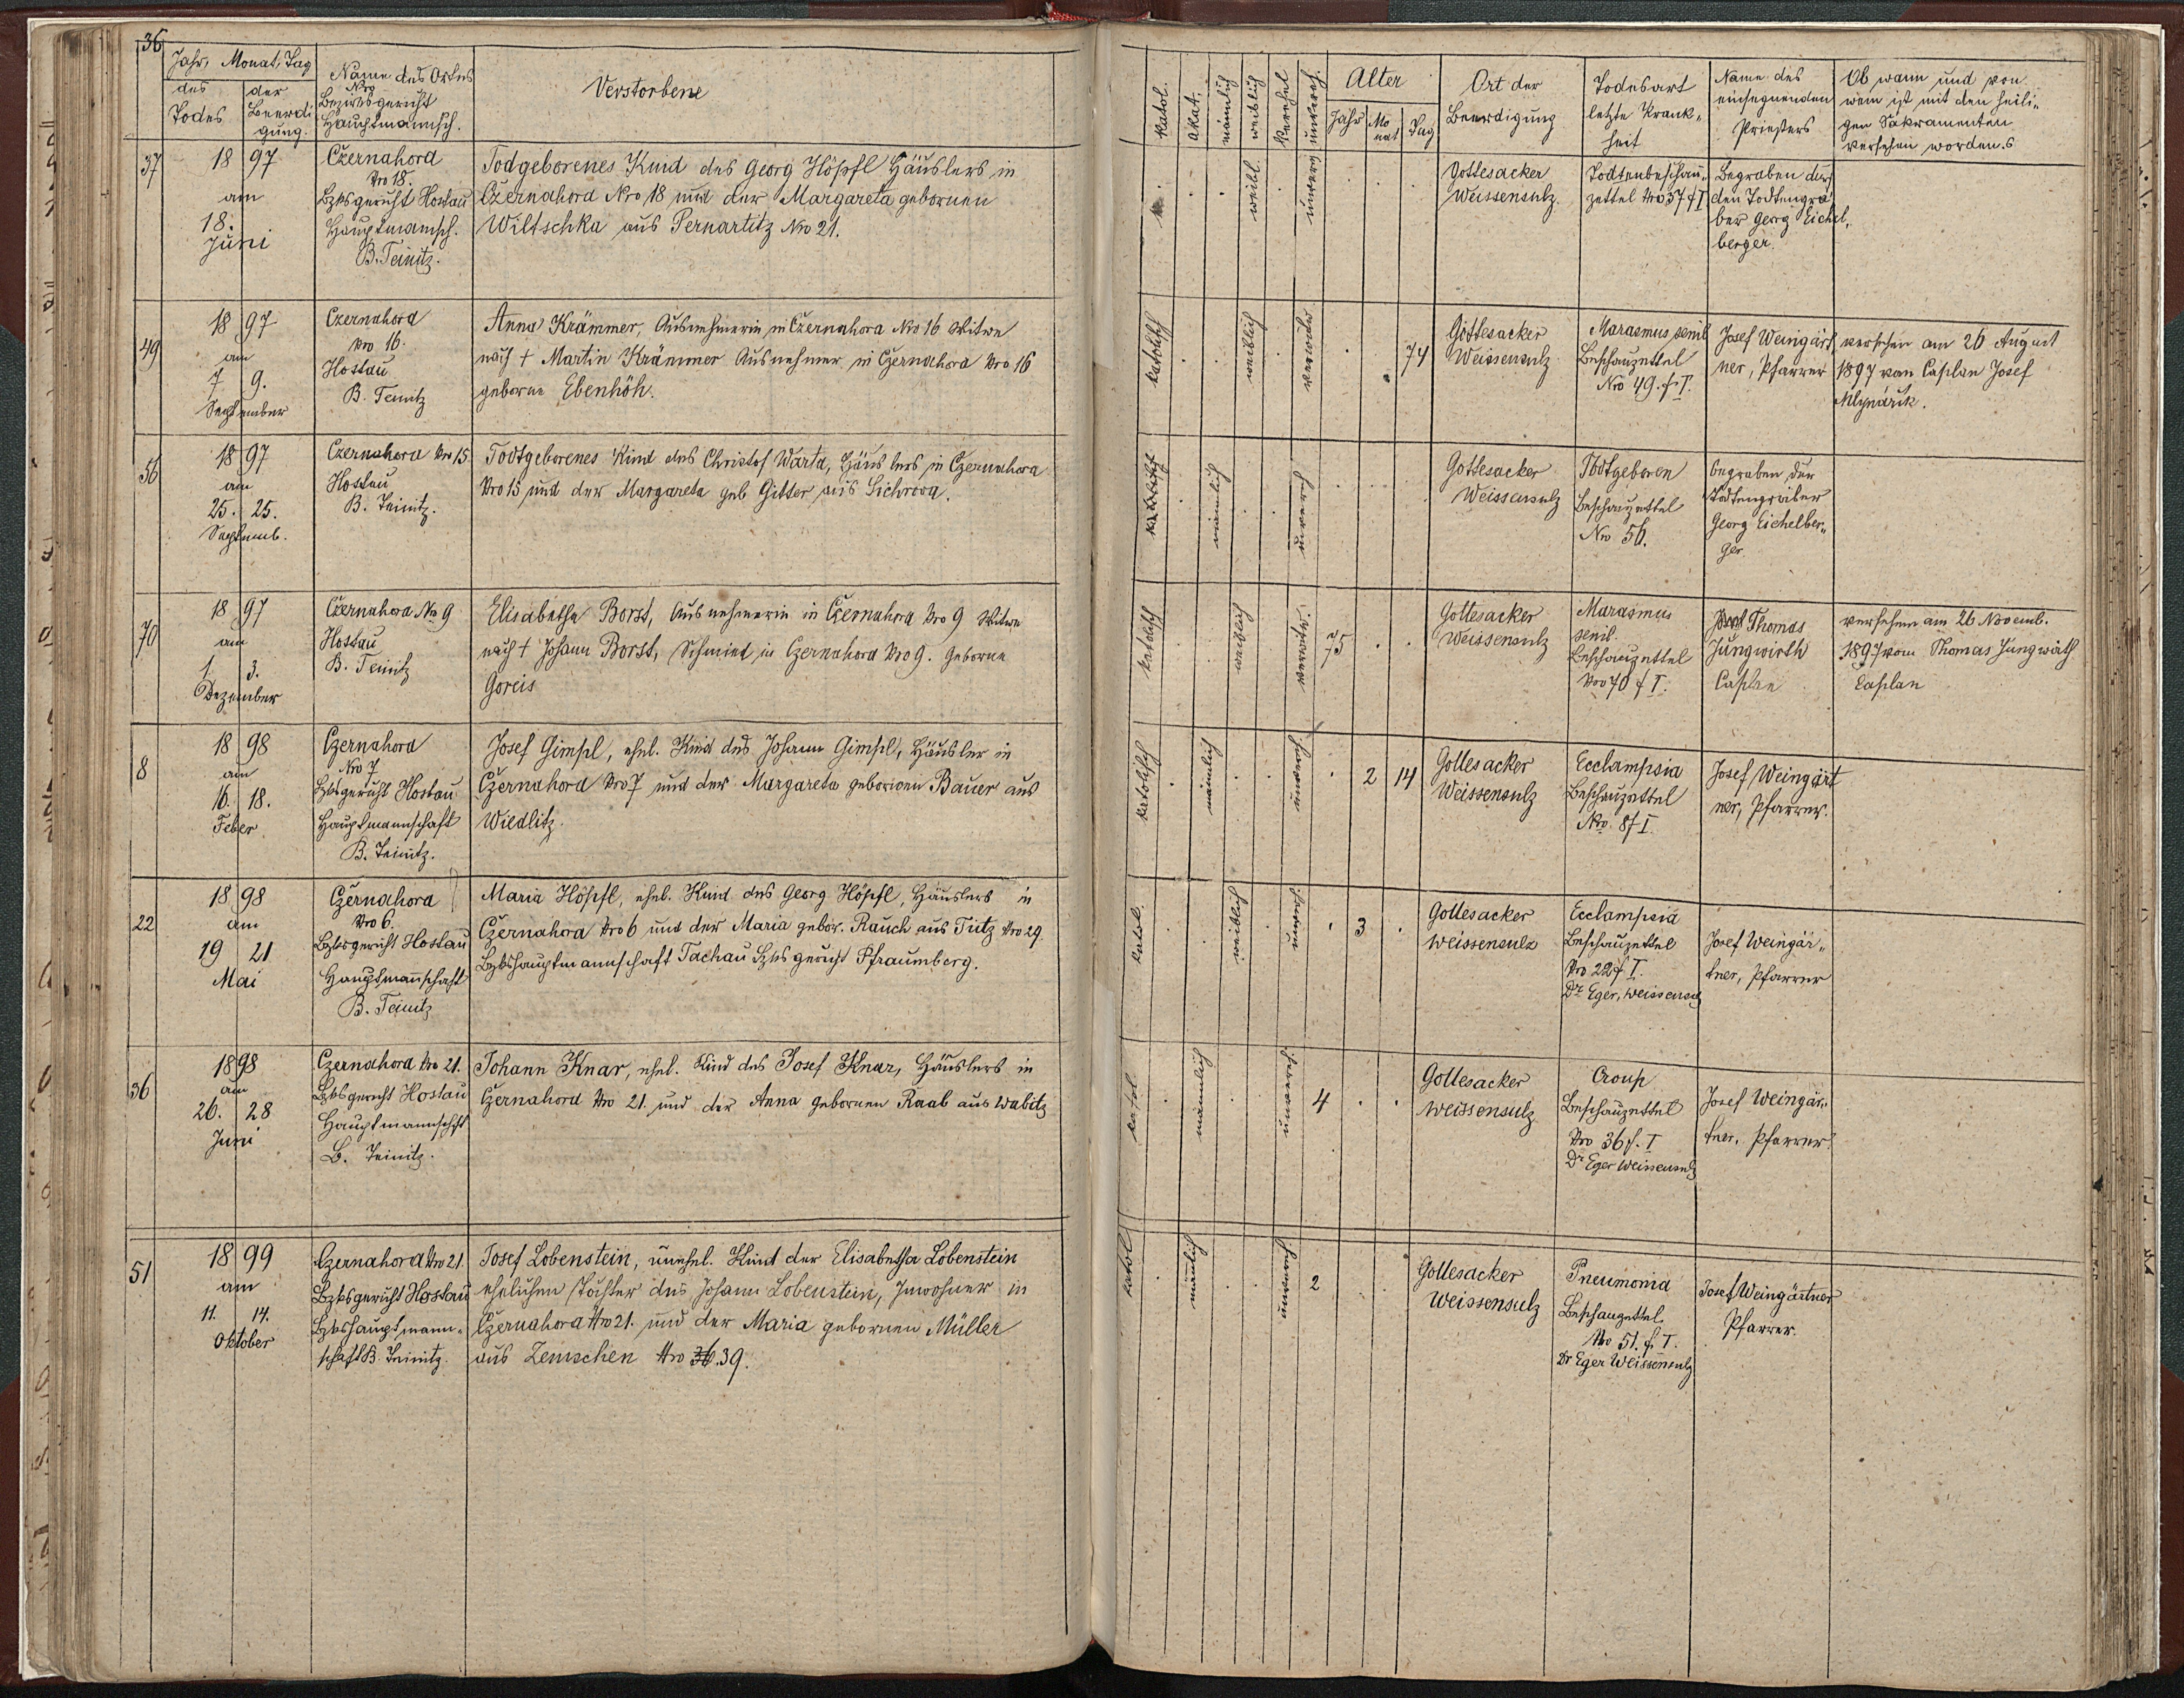 36
Jahr, Monat, Tag
des Todes
der Beerdi
gung.
Name des Ortes
Nro
Bezirksgericht
Hauptmannsch.
Verstorbene
katol.
akat.
mänlich
weiblich
verehel
unvereh.
Alter
Jahr
Mo
nat
Tag
Ort der
Beerdigung
Todesart
letzte Krank„
heit
Name des
einsegnenden
Priesters
Ob wann und von
wem ist mit den heili„
gen Sakramenten
versehen worden.
37
18 97
am
18.
Juni
Czernahora
Nro 18.
Bzksgericht Hostau
Hauptmannsch.
B. Teinitz.
Todgeborenes Kind des Georg Höpfl Häuslers in
Czernahora Nro 18 und der Margareta gebornen
Wiltschka aus Pernartitz Nro 21.
weibl.
unvereh
Gottesacker
Weissensulz.
Todtenbeschau„
zettel Nro 37 f I
Begraben durch
den Todtengrä
ber Georg Eichel„
berger.
49
18 97
am
7 9.
September
Czernahora
Nro 16.
Hostau
B. Teinitz
Anna Krämmer, Ausnehmerin in Czernahora Nro 16 Witwe
nach † Martin Krämmer Ausnehmer in Czernahora Nro 16
geborne Ebenhöh.
katolisch
weiblich
verwitw
74
Gottesacker
Weissensulz
Marasmus senil
Beschauzettel
Nro 49. f. I.
Josef Weingärt
ner, Pfarrer
versehen am 26 August
1897 von Caplan Josef
Mlynárik.
56
18 97
am
25. 25.
Septemb.
Czernahora Nro 15
Hostau
B. Teinitz.
Todtgeborenes Kind des Christof Warta, Häuslers in Czernahora
Nro 15 und der Margareta geb Gitter aus Sichrova.
katolisch
mänlich
unvereh
Gottesacker
Weissensulz
Todtgeboren
Beschauzettel
Nro 56.
begraben der
Todtengräber
Georg Eichelber„
ger
70
18 97
am
1 3.
Dezember
Czernahora No 9
Hostau
B. Teinitz
Elisabetha Borst, Ausnehmerin in Czernahora Nro 9 Witwe
nach † Johann Borst, Schmied in Czernahora Nro 9. Geborne
Goreis
katolisch
weiblich
verwitw.
75
Gottesacker
Weissensulz
Marasmus
senil.
Beschauzettel
Nro 70 f I.
Thomas
Jungwirth
Caplan
versehen am 26 Novemb.
1897 vom Thomas Jungwirth
Caplan
8
18 98
am
16. 18.
Feber
Czernahora
Nro 7
Bzksgericht Hostau
Hauptmannschaft
B. Teinitz.
Josef Gimpl, ehel. Kind des Johann Gimpl, Häusler in
Czernahora Nro 7 und der Margareta gebornen Bauer aus
Wiedlitz.
katolisch
mänlich
unvereh
2 14
Gottesacker
Weissensulz
Ecclampsia
Beschauzettel
Nro. 8 f I.
Josef Weingärt
ner, Pfarrer.
22
18 98
am
19 21
Mai
Czernahora
Nro 6.
Bzksgericht Hostau
Hauptmannschaft
B. Teinitz
Maria Höpfl, ehel. Kind des Georg Höpfl, Häuslers in
Czernahora Nro 6 und der Maria gebor. Rauch aus Tutz Nro 29.
Bzkshauptmannschaft Tachau Bzksgericht Pfraumberg.
katol.
weiblich
unvereh.
3
Gottesacker
weissensulz
Ecclampsia
Beschauzettel
Nro 22 f I.
Dr Eger, Weissensulz
Josef Weingär„
tner, Pfarrer
36
1898
am
26. 28
Juni
Czernahora Nro 21.
Bzksgericht Hostau
Hauptmannschft
B. Teinitz.
Johann Knar, ehel. Kind des Josef Knar, Häuslers in
Czernahora Nro 21 und der Anna gebornen Raab aus Wabitz
katol.
mänlich
unvereh.
4
Gottesacker
Weissensulz.
Croup
Beschauzettel
Nro 36 f. I
Dr Eger Weissensulz
Josef Weingär„
tner, Pfarrer
51
18 99
am
11. 14.
Oktober
Czernahora Nro 21.
Bzksgericht Hostau
Bzkshauptmann„
schaft B. Teinitz.
Josef Lobenstein, unehel. Kind der Elisabetha Lobenstein
ehelichen Tochter des Johann Lobenstein, Inwohner in
Czernahora Nro 21. und der Maria gebornen Müller
aus Zemschen Nro 36. 39.
katol
mänlich
unvereh.
2
Gottesacker
Weissensulz
Pneumonia
Beschauzettel
Nro 51. f. I.
Dr Eger Weissensulz
Josef Weingärtner
Pfarrer.